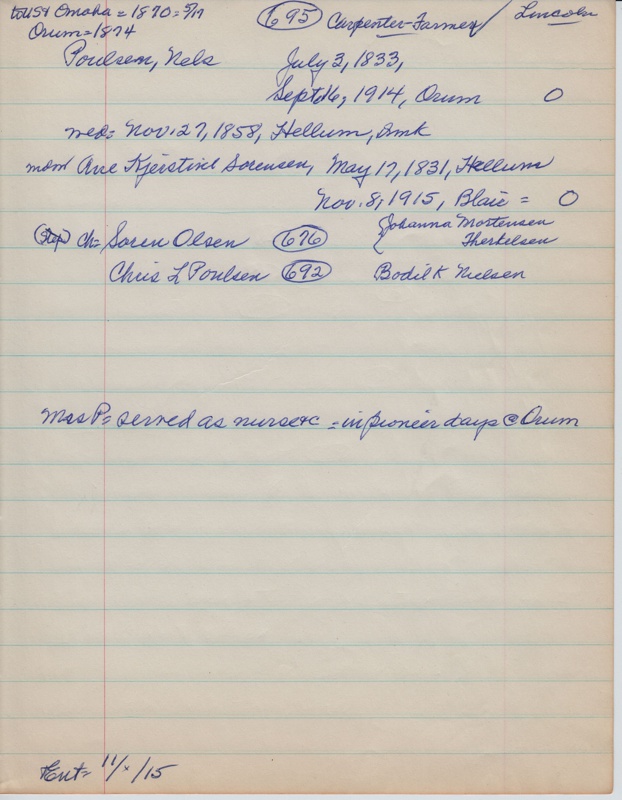 to US & Omaha = 1870 = 5/17
Orum = 1874
695
Carpenter-Farmer
Lincoln
Poulsen, Nels July 3, 1833,
Sept. 16, 1914, Orum O
wed = Nov. 27, 1858, Hellum, Dmk
mdm Ane Kjerstine Sorensen, May 17, 1831, Hellum
Nov. 8, 1915, Blair = O
(Step) ch = Soren Olsen 676 { Johanna Mortensen
Therkelsen
Chris L Poulsen 692 Bodil K Nielsen
Mrs P = served as nurse &c = in pioneer days @ Orum
Ent = 11/x/15